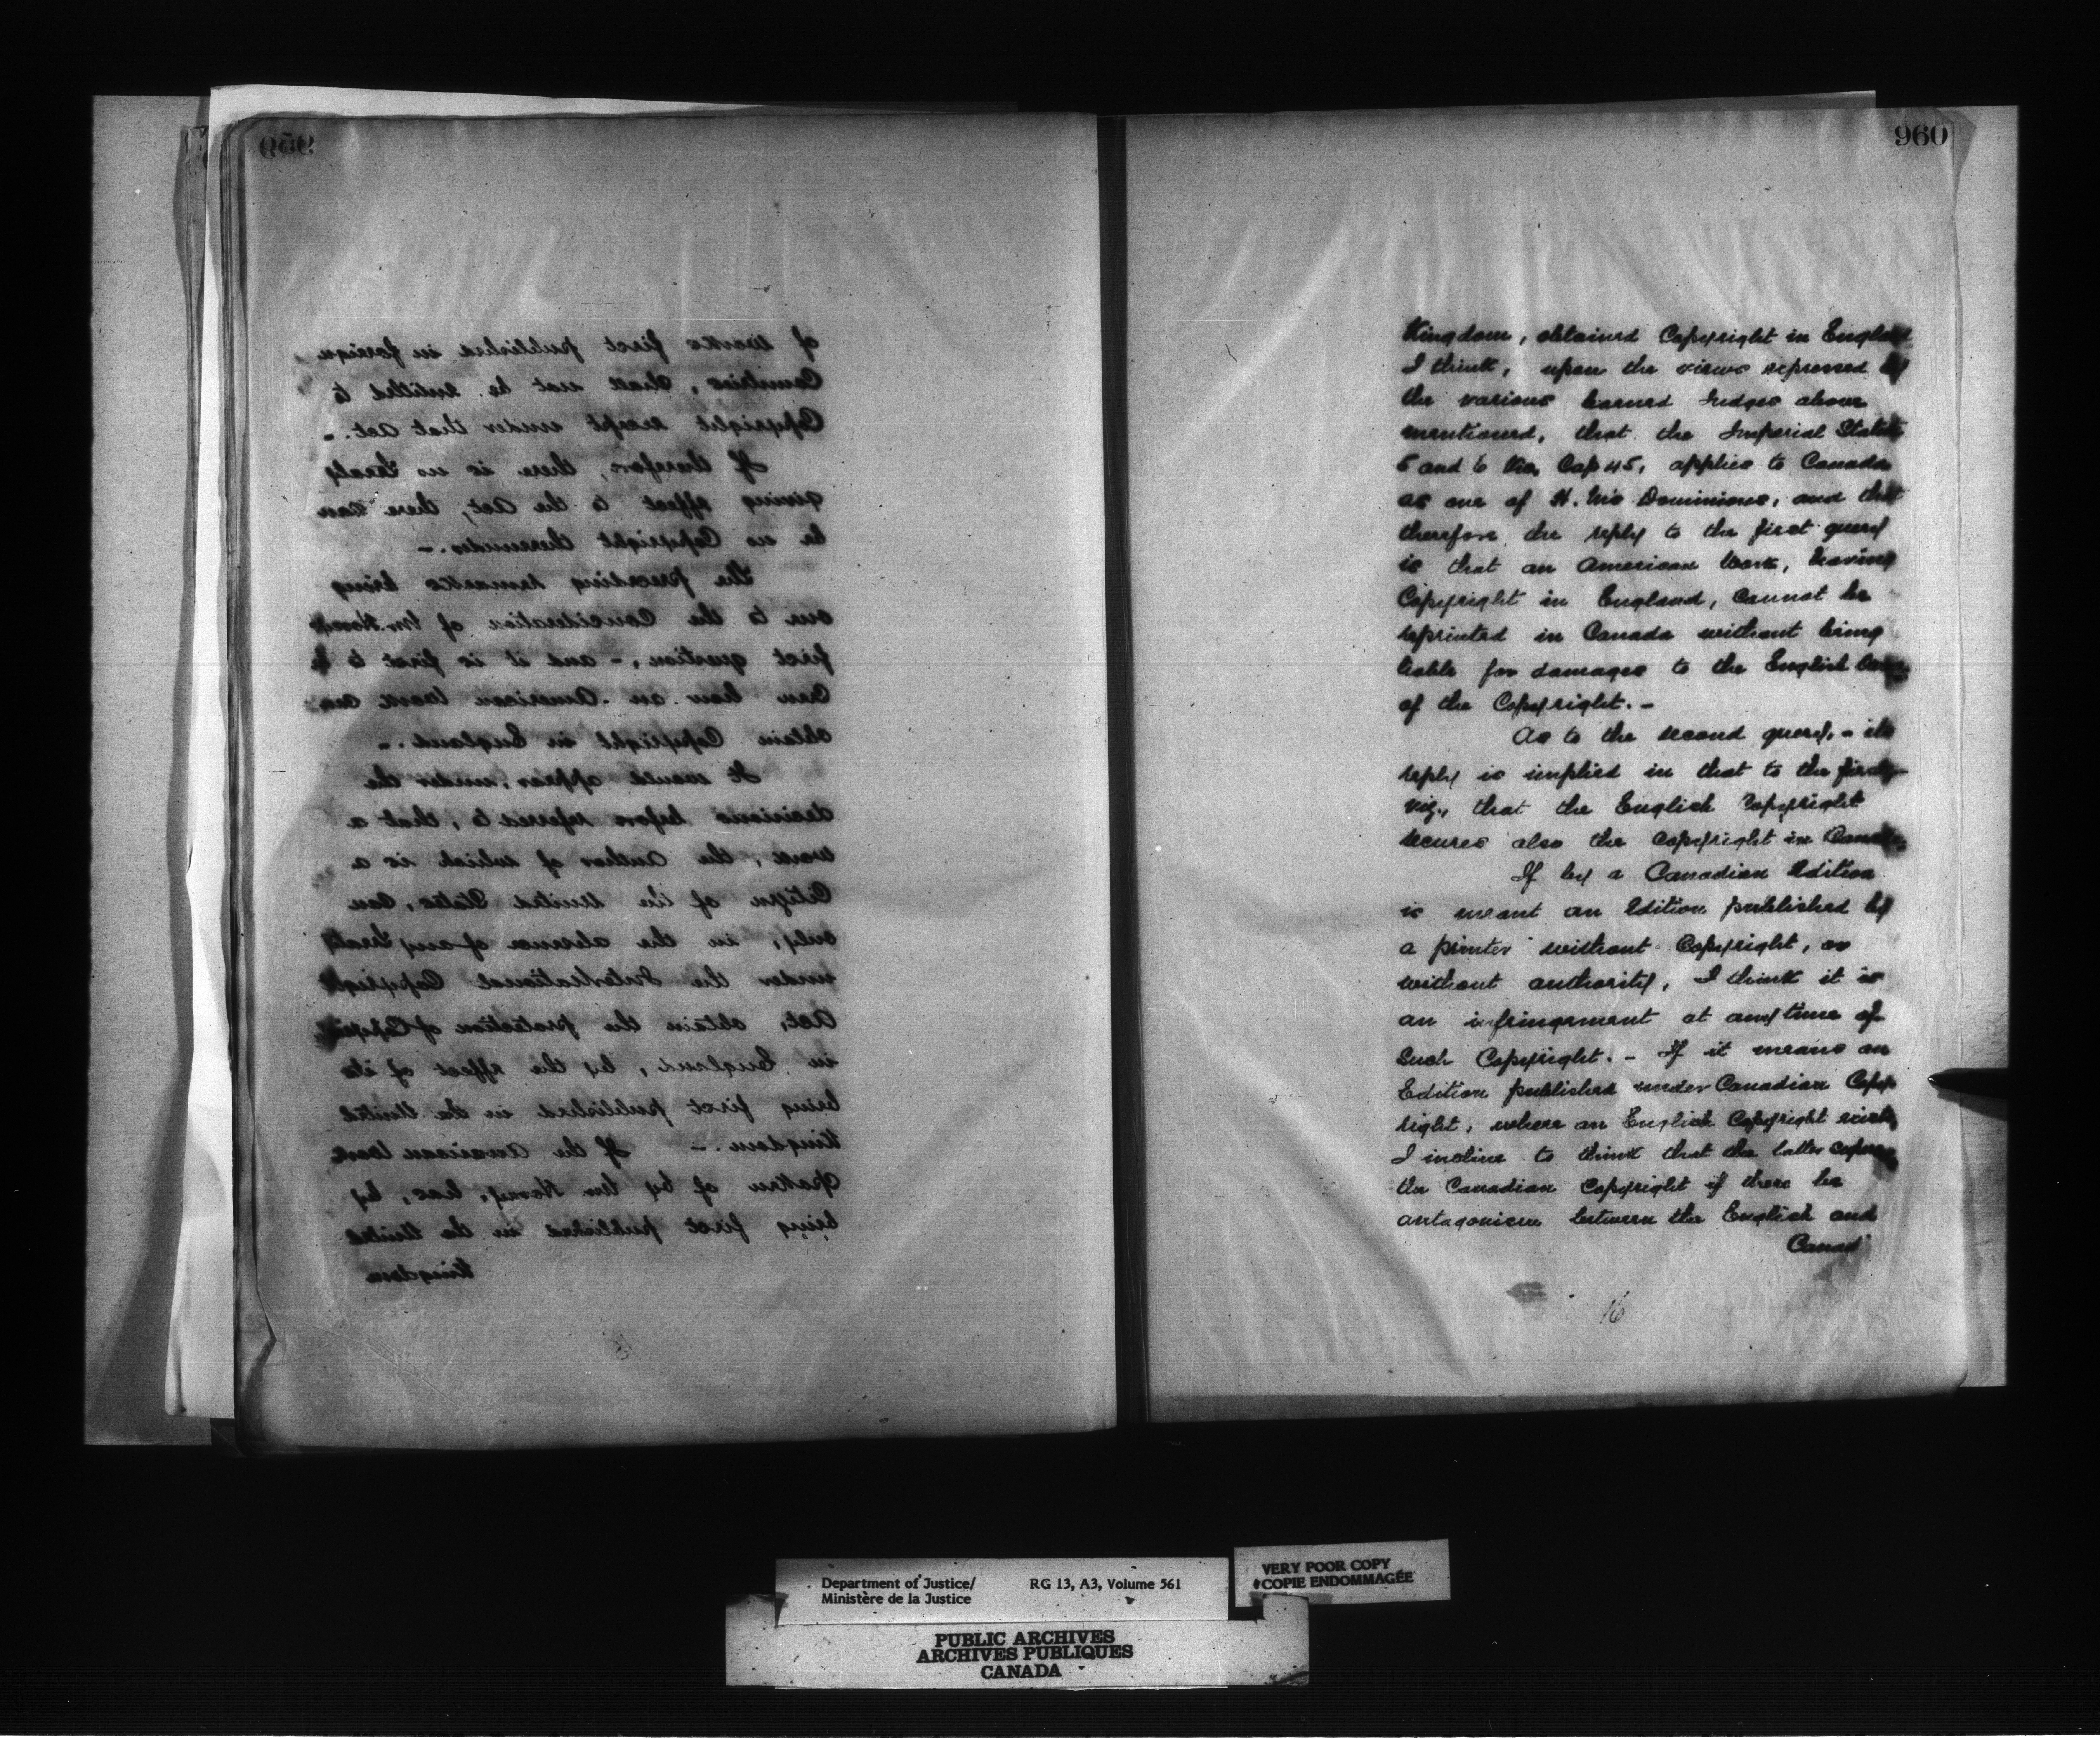 959
of works first published in foreign
Countries, shall not be entitled to
Copyright except under that Act. -
If therefore, there is no Treaty
giving effect to the Act, there can
be no Copyright thereunder. -
The preceding remarks bring
me to the Consideration of Mr
first question, - and it is first to be
seen how an American work can
obtain Copyright in England. -
It would appear, under the
decisions before referred to, that a
work, the Author of which is a
Citizen of the United States, can
only, in the absence of any Treaty
under the International Copyright
Act, obtain the protection of Copyright
in England, by the effect of its
being first published in the United
Kingdom. - If the American work
spoken of by Mr has, by
being first published in the United
Kingdom
960
Kingdom, obtained Copyright in England
I think, upon the views expressed by
the various learned Judges above
mentioned, that the Imperial Statute
5 and 6 Vic, Cap 45, applies to Canada
as one of H. M's Dominions, and that
therefore the reply to the first query
is that an American Work, having
Copyright in England, cannot be
reprinted in Canada without being
liable for damages to the English
of the Copyright. -
As to the second query, - its
reply is implied in that to the first,
viz., that the English Copyright
secures also the Copyright in Canada
If by a Canadian Edition
is meant an Edition published by
a printer without Copyright, or
without authority, I think it is
an infringement at any time of
Such Copyright. - If it means an
Edition published under Canadian Copy
right, where an English Copyright exists
I incline to think that the latter
the Canadian Copyright if there be
antagonism between the English and
Canad
16
Department of Justice/ RG 13, A3, Volume 561
Ministère de la Justice
VERY POOR COPY
COPIE ENDOMMAGÉE
PUBLIC ARCHIVES
ARCHIVES PUBLIQUES
CANADA